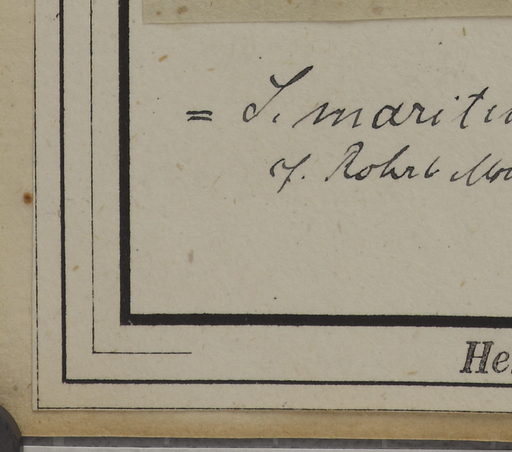 = S. mariti
cf. Rohrb Mo
He